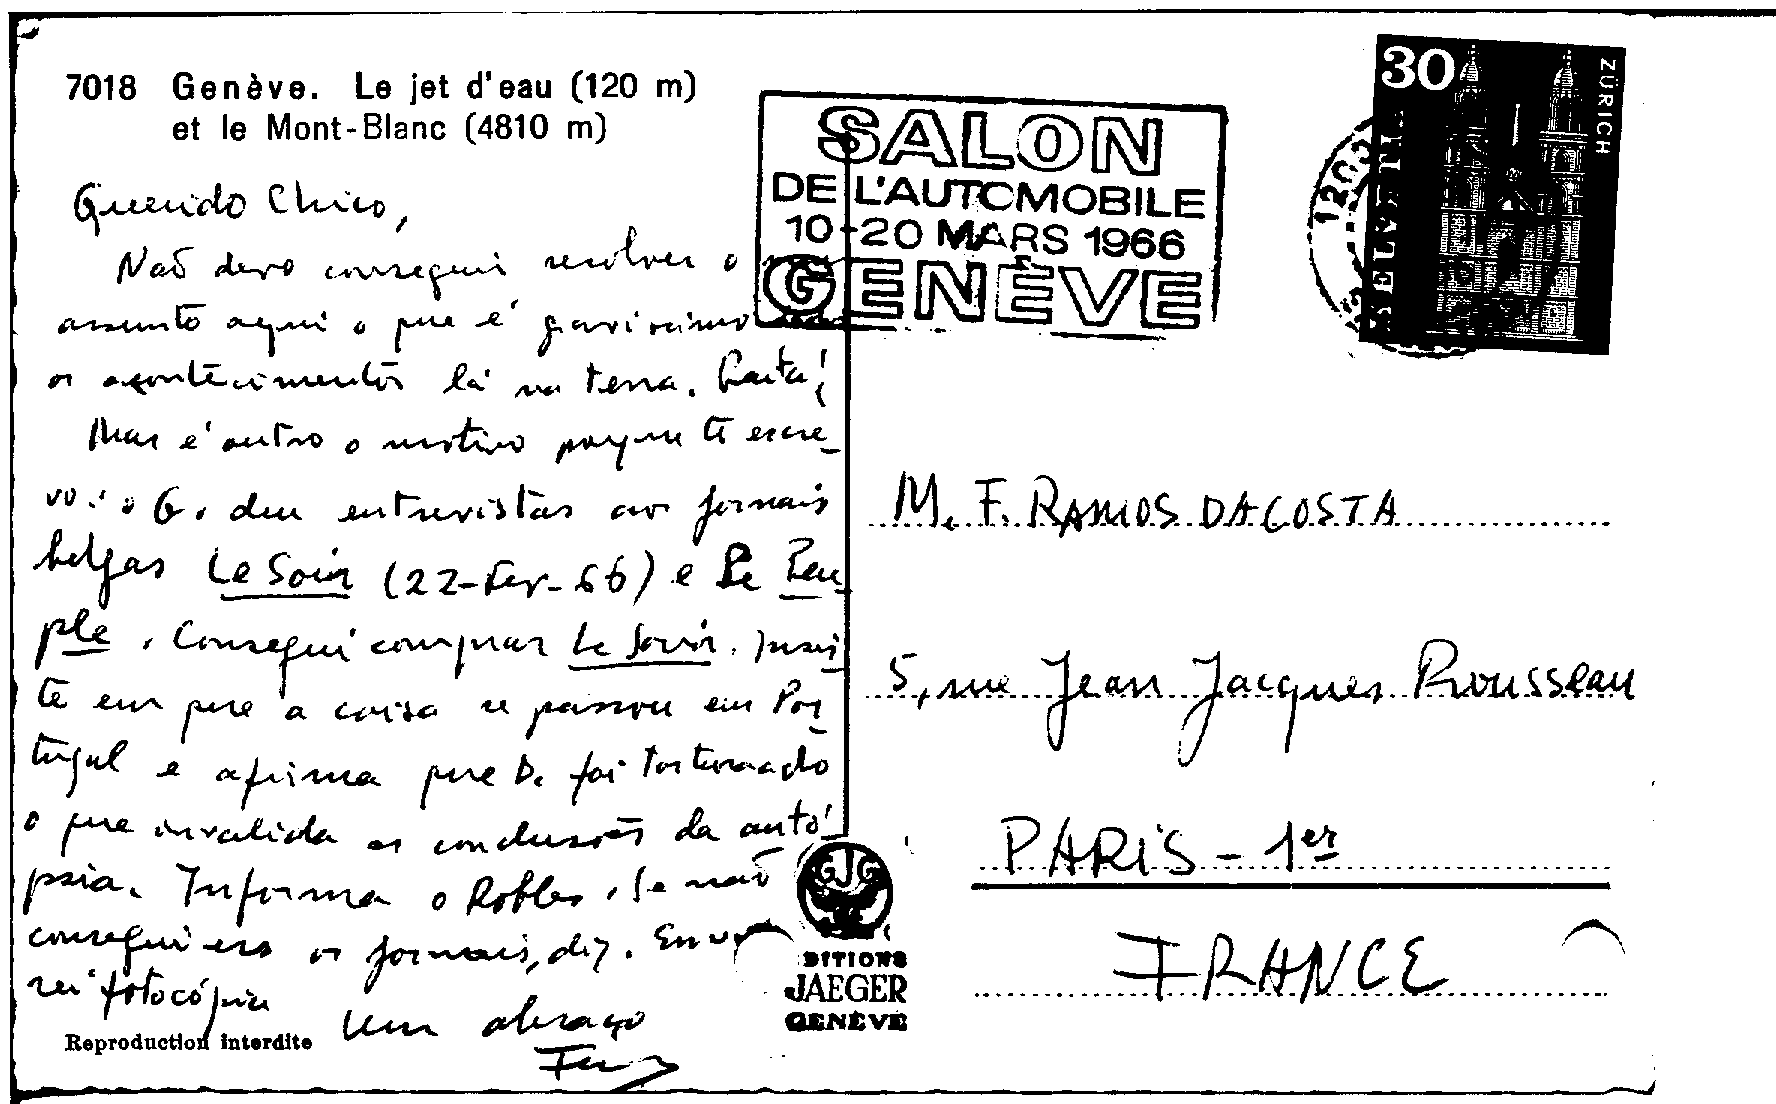 7018 Genève. Le jet d'eau (120 m)
et le Mont-Blanc (4810 m)
SALON
DE L'AUTOMOBILE
10-20 MARS 1966
GENÈVE
30
HELVETIA
ZÜRICH
Querido Chico,
Não devo conseguir resolver o
assunto aqui o que é gravíssimo
os acontecimentos lá na terra.
Mas é outro o motivo porque te escre-
vo: o G. deu entrevistas aos jornais
belgas Le Soir (22-Fev-66) e Le Peu-
ple. Consegui comprar Le Soir. Insis-
te em que a coisa se passou em Por-
tugal e afirma que D. foi torturado
o que invalida as conclusões da autó-
psia. Informa o Robles. Se não
conseguires os jornais, diz. Envia-
rei fotocópia
Um abraço
M. F. RAMOS DA COSTA
5, rue Jean Jacques Rousseau
PARIS - 1er
FRANCE
GJG
EDITIONS
JAEGER
GENÈVE
Reproduction interdite